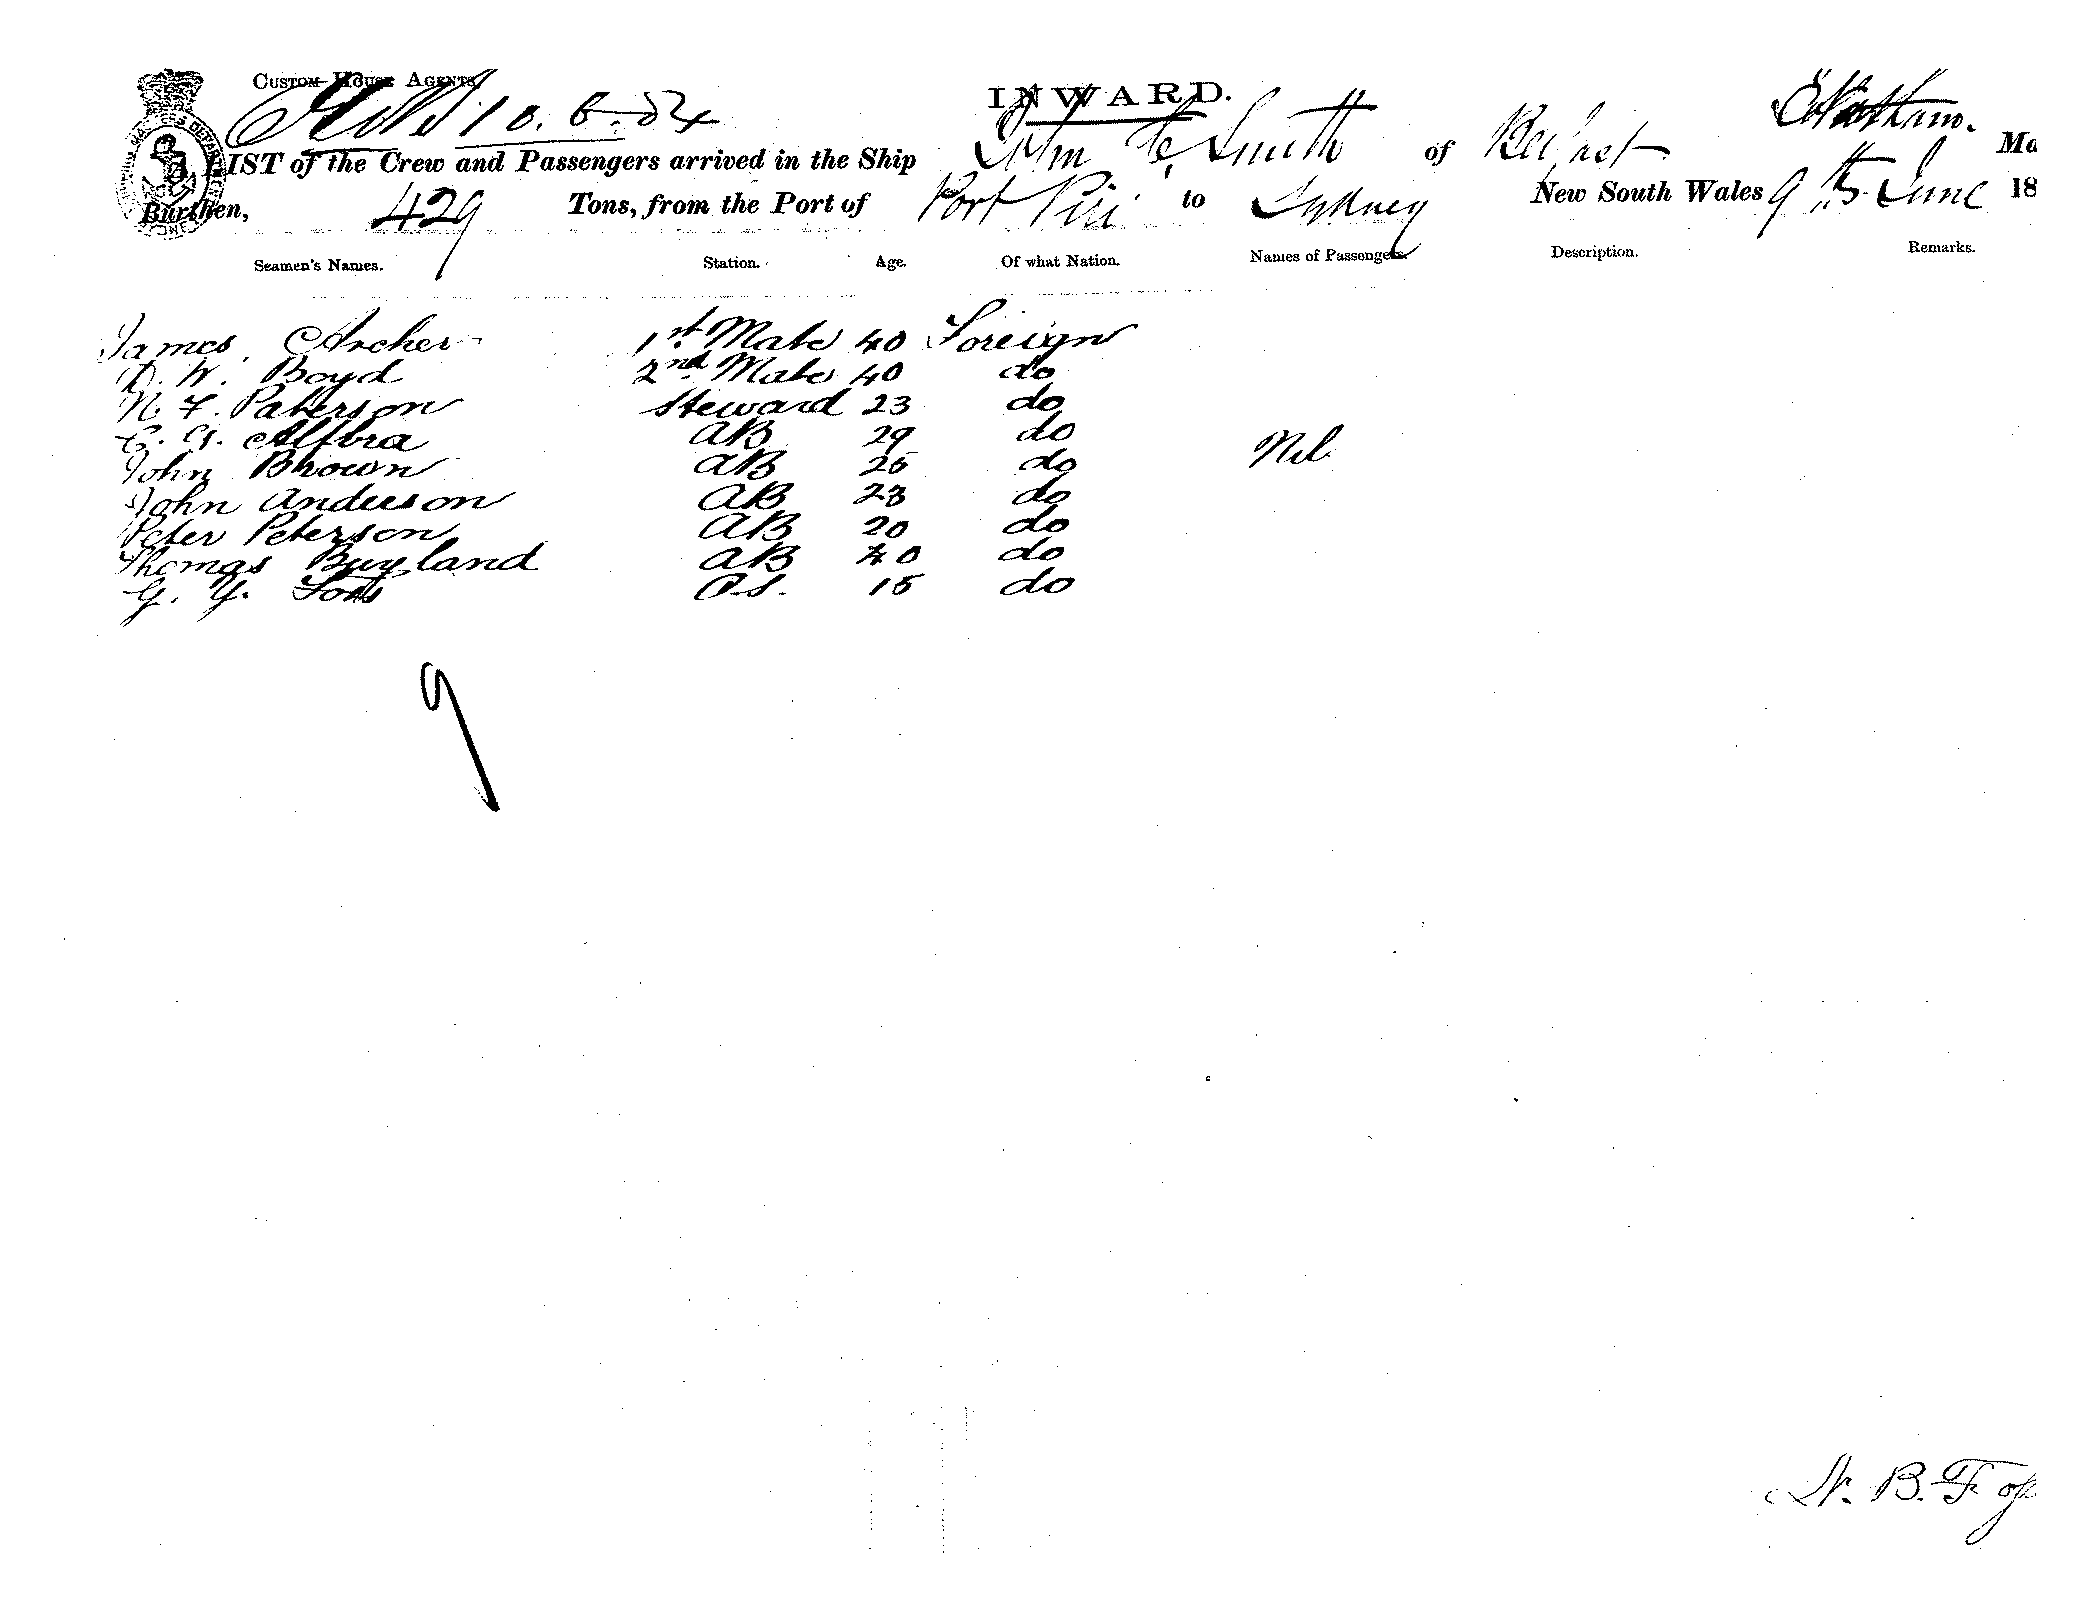 CUSTOM HOUSE AGENTS
10.6.84
INWARD.
LIST of the Crew and Passengers arrived in the Ship John C. Smith of Belfast
Burthen, 429 Tons, from the Port of Port Piri to Sydney New South Wales 9th June 18
Seamen's Names. Station. Age. Of what Nation. Names of Passengers. Description. Remarks.
James Archer 1st Mate 40 Foreign
D. W. Boyd 2nd Mate 40 do
N. F. Paterson Steward 23 do
AB 29 do Nil
John Brown AB 25 do
John Anderson AB 23 do
Peter Peterson AB 20 do
Thomas AB 40 do
G. Y. O.S. 15 do
9